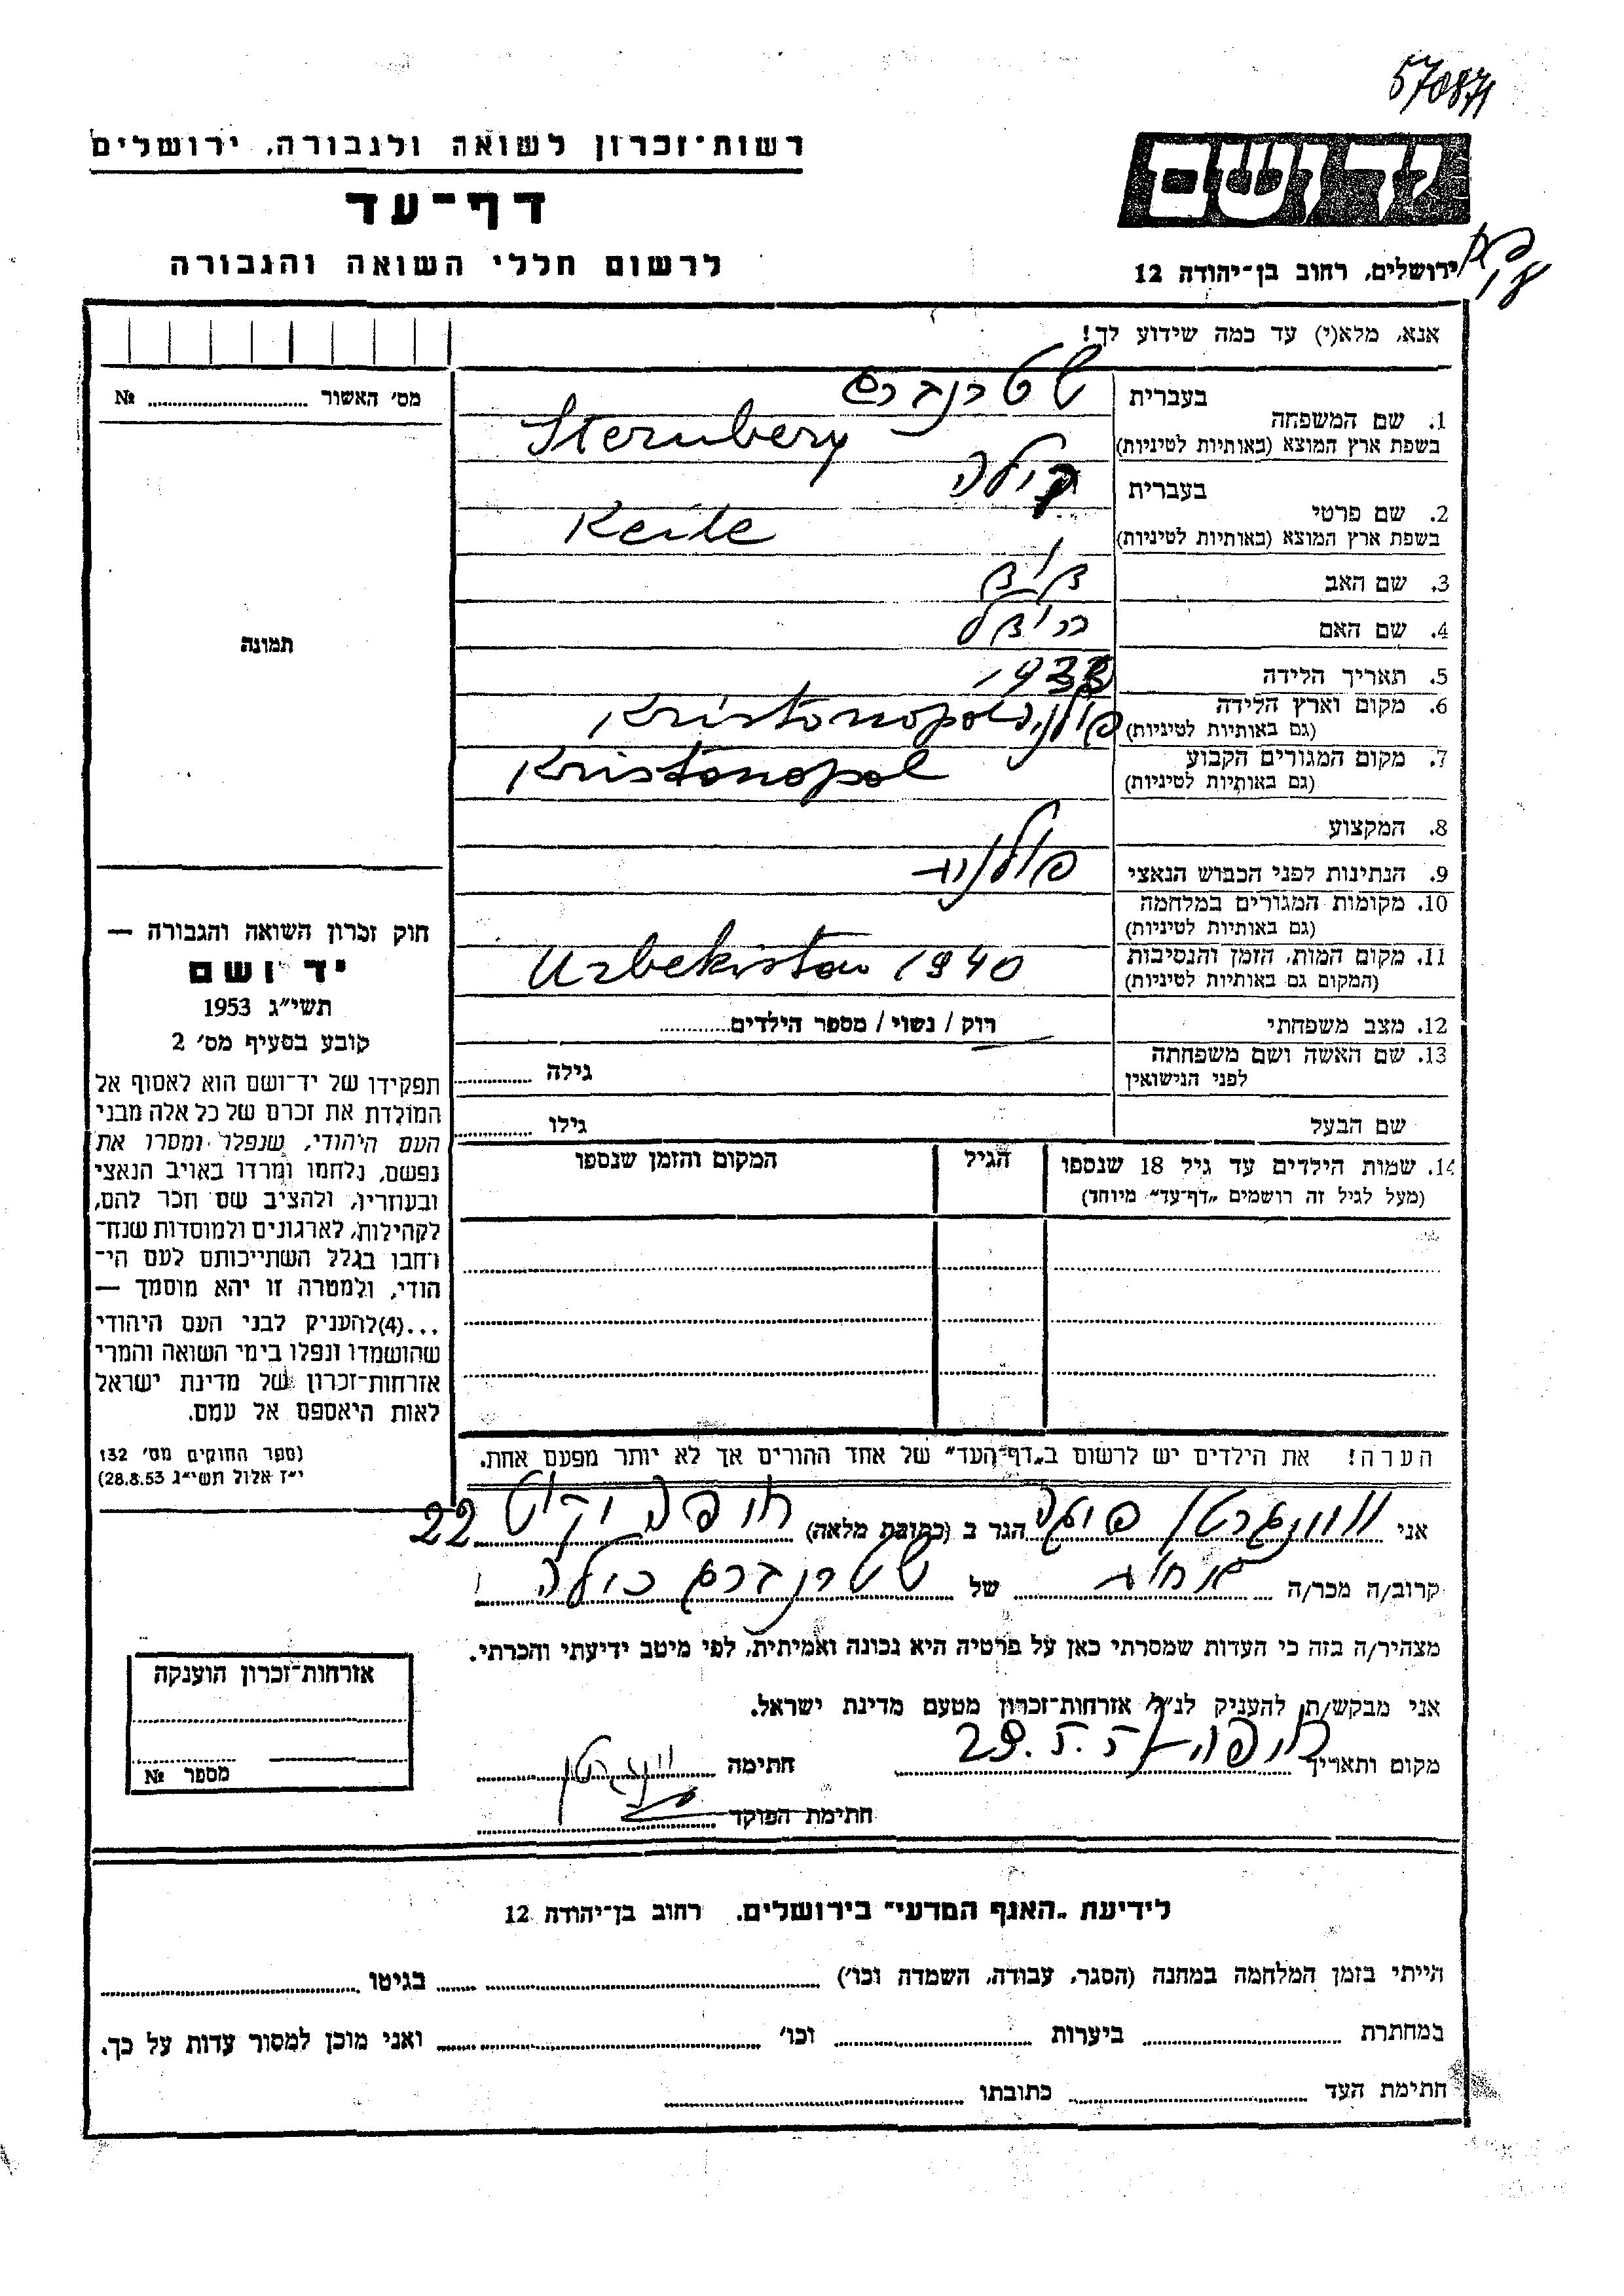 570871
רשות־זכרון לשואה ולגבורה, ירושלים
דף־עד
לרשום חללי השואה והגבורה
יד ושם
ירושלים, רחוב בן־יהודה 12
אנא, מלא(י) עד כמה שידוע לך!
מס׳ האשור .......... №
1. שם המשפחה
בעברית שטרנברג
בשפת ארץ המוצא (באותיות לטיניות) Sternberg
2. שם פרטי
בעברית קילה
בשפת ארץ המוצא (באותיות לטיניות) Keile
3. שם האב
4. שם האם
תמונה
5. תאריך הלידה 1933
6. מקום וארץ הלידה (גם באותיות לטיניות) פולניה Kristonopol
7. מקום המגורים הקבוע (גם באותיות לטיניות) Kristonopol
8. המקצוע
9. הנתינות לפני הכבוש הנאצי פולנית
10. מקומות המגורים במלחמה (גם באותיות לטיניות)
11. מקום המות, הזמן והנסיבות (המקום גם באותיות לטיניות) Uzbekistan 1940
12. מצב משפחתי רוק / נשוי / מספר הילדים..........
13. שם האשה ושם משפחתה לפני הנישואין גילה ..........
שם הבעל גילו ..........
14. שמות הילדים עד גיל 18 שנספו הגיל המקום והזמן שנספו
(מעל לגיל זה רושמים „דף־עד״ מיוחד)
חוק זכרון השואה והגבורה —
יד ושם
תשי״ג 1953
קובע בסעיף מס׳ 2
תפקידו של יד־ושם הוא לאסוף אל
המולדת את זכרם של כל אלה מבני
העם היהודי, שנפלו ומסרו את
נפשם, נלחמו ומרדו באויב הנאצי
ובעוזריו, ולהציב שם וזכר להם,
לקהילות, לארגונים ולמוסדות שנח־
רחבו בגלל השתייכותם לעם הי־
הודי, ולמטרה זו יהא מוסמך —
...(4)להעניק לבני העם היהודי
שהושמדו ונפלו בימי השואה והמרי
אזרחות־זכרון של מדינת ישראל
לאות היאספם אל עמם.
(ספר החוקים מס׳ 132
י״ז אלול תשי״ג 28.8.53)
הערה! את הילדים יש לרשום ב„דף־העד״ של אחד ההורים אך לא יותר מפעם אחת.
אני ווינגרטן פויגה הגר ב (כתובת מלאה) חיפה 22
קרוב/ה מכר/ה אחות של שטרנברג קילה
מצהיר/ה בזה כי העדות שמסרתי כאן על פרטיה היא נכונה ואמיתית, לפי מיטב ידיעתי והכרתי.
אני מבקש/ת להעניק לנ״ל אזרחות־זכרון מטעם מדינת ישראל.
מקום ותאריך חיפה 29.5.55 חתימה וינגרטן
חתימת הפוקד
אזרחות־זכרון הוענקה
מספר №
לידיעת „האגף המדעי״ בירושלים, רחוב בן־יהודה 12
הייתי בזמן המלחמה במחנה (הסגר, עבודה, השמדה וכו׳) .......... בגיטו ..........
במחתרת .......... ביערות .......... וכו׳ .......... ואני מוכן למסור עדות על כך.
חתימת העד .......... כתובתו ..........